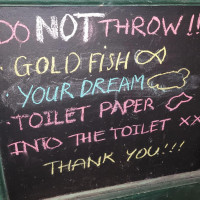 DO NOT THROW!!
GOLD FISH
YOUR DREAM
TOILET PAPER
INTO THE TOILET XX
THANK YOU!!!